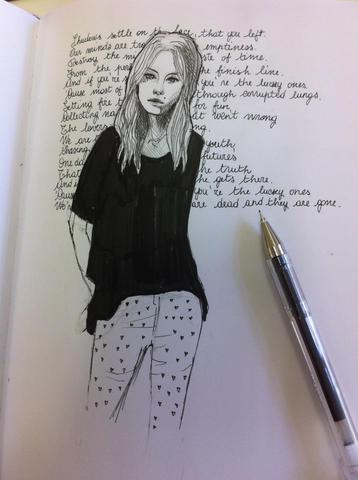 Shadows settle on the place, that you left.
Our minds are tro emptiness.
Destroy the mi ste of time.
From the per the finish line.
And if you're you're the lucky ones
'Cause most of through corrupted lungs.
Setting fire for fun
Collecting na at went wrong
The lovers ng.
We are youth,
Chasing futures
One da the truth
That he gets there.
And i you're the lucky ones
'Caus are dead and they are gone.
We'r